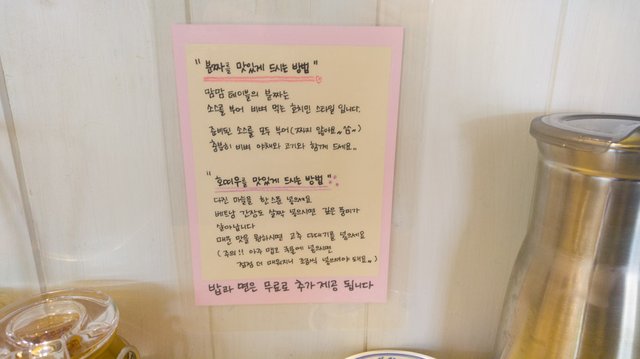 " 분짜를 맛있게 드시는 방법 "
맘맘테이블의 분짜는
소스를 부어 비벼 먹는 호치민 스타일 입니다.
준비된 소스를 모두 부어 (짜지 않아요~^^~)
충분히 비벼 야채와 고기와 함께 드세요..
" 호띠우를 맛있게 드시는 방법 "
다진 마늘을 한스푼 넣으세요
베트남 간장도 살짝 넣으시면 깊은 풍미가
살아납니다
매운 맛을 원하시면 고추 다대기를 넣으세요
( 주의!! 아주 맵고 국물에 넣으면
점점 더 매워지니 조금씩 넣으셔야 돼요..)
밥과 면은 무료로 추가 제공 됩니다